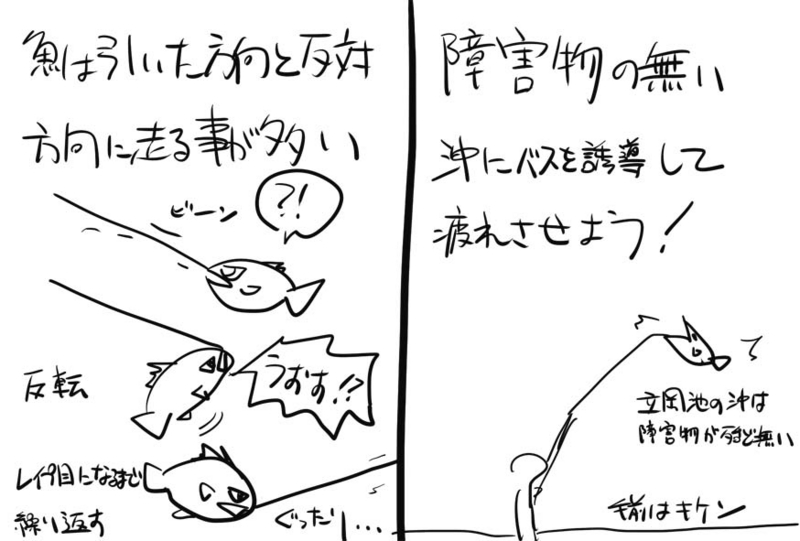 魚は引いた方向と反対
方向に走る事が多い
ビーン
?!
反転
うおお!?
レイプ目になるまで
繰り返す
ぐったり...
障害物の無い
沖にバスを誘導して
疲れさせよう!
立岡池の沖は
障害物が殆ど無い
手前はキケン